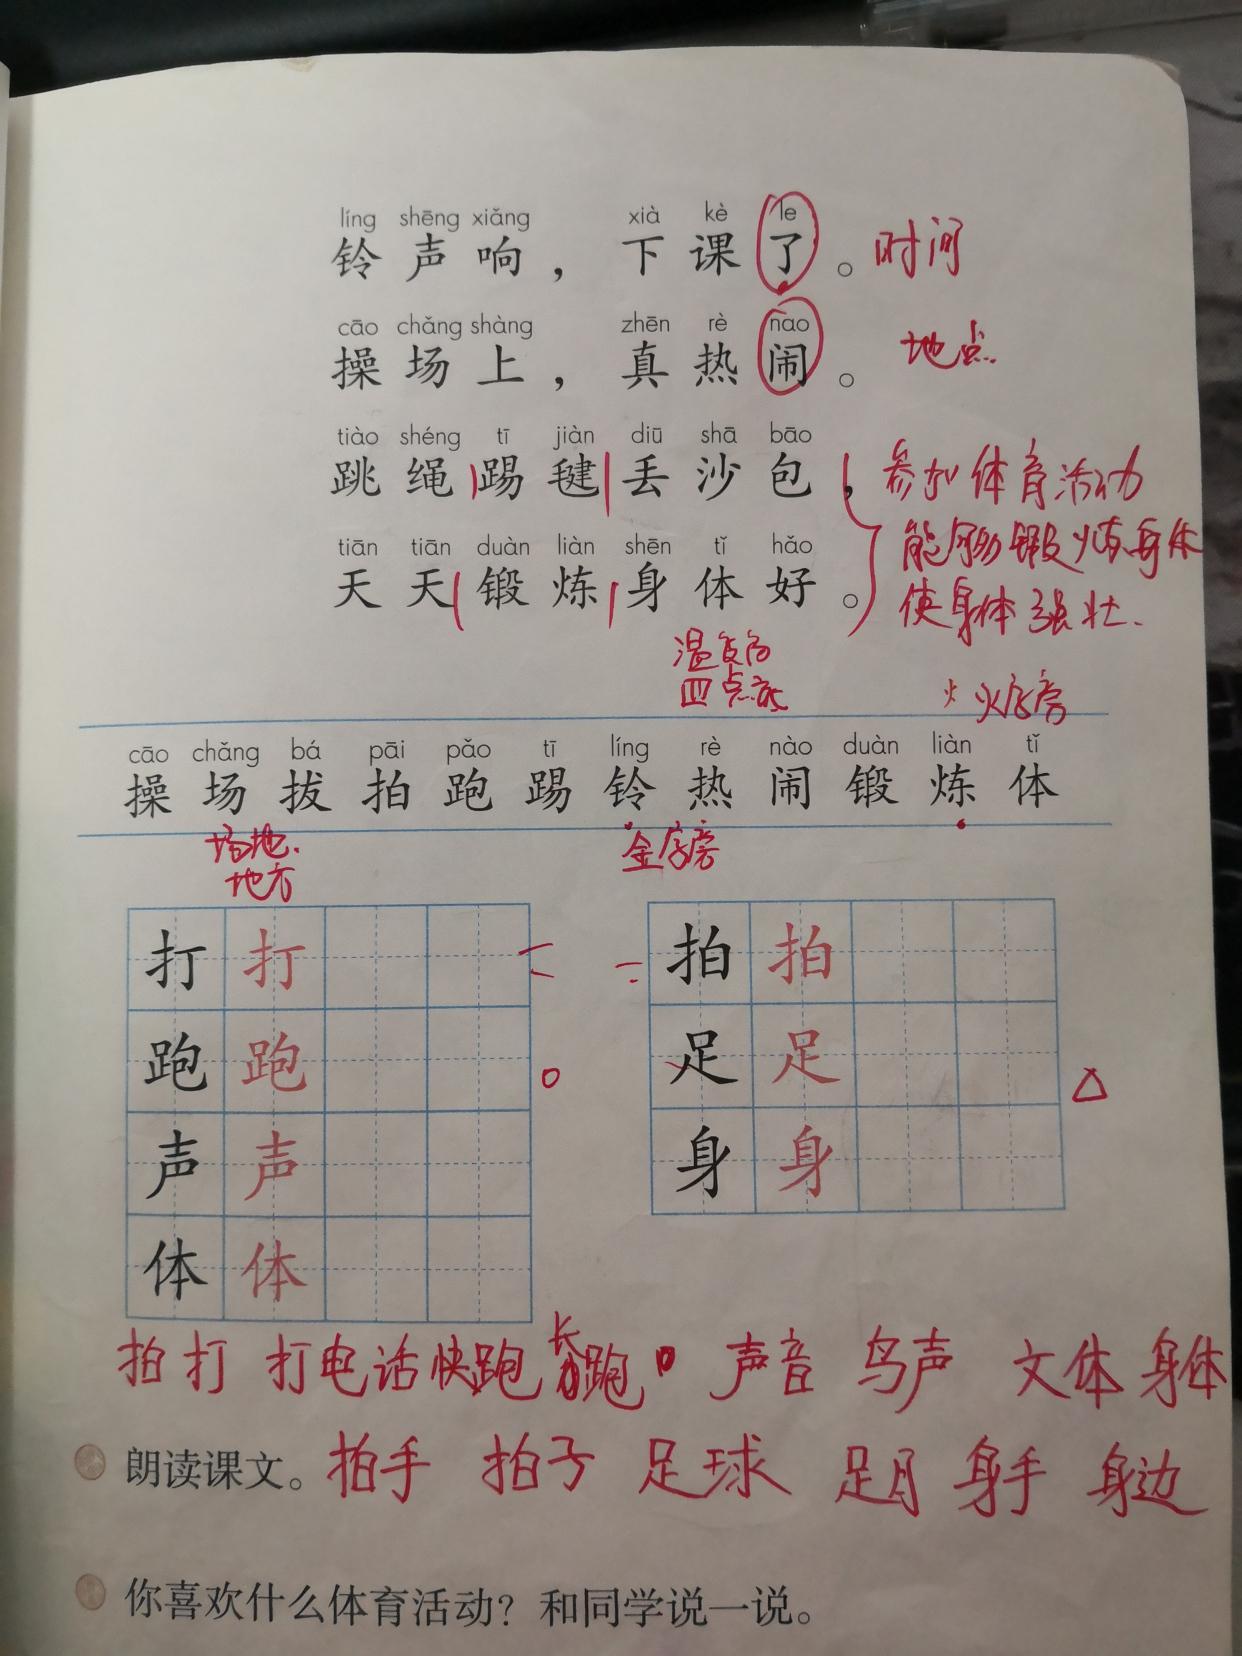 líng shēng xiǎng xià kè le
铃声响，下课了。时间
cāo chǎng shàng zhēn rè nao
操场上，真热闹。地点
tiào shéng tī jiàn diū shā bāo
跳绳踢毽丢沙包，参加体育活动
能够锻炼身体
tiān tiān duàn liàn shēn tǐ hǎo
天天锻炼身体好。使身体强壮.
温度高
四点底
火 火字旁
cāo chǎng bá pāi pǎo tī líng rè nào duàn liàn tǐ
操场拔拍跑踢铃热闹锻炼体
场地. 金字旁
地方
打 打 拍 拍
跑 跑 足 足
声 声 身 身
体 体
拍打 打电话 快跑 长跑 声音 鸟声 文体 身体
朗读课文。拍手 拍子 足球 足月 身手 身边
你喜欢什么体育活动？和同学说一说。